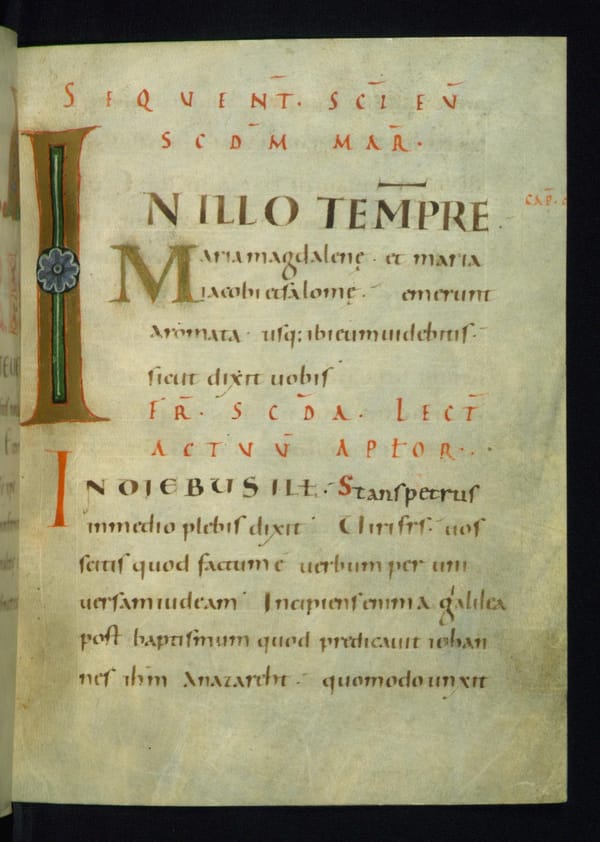 SEQUENT̄· SC̄I EV̄
SCD̄M MAR̄·
IN ILLO TEM̄PRE
Maria magdalenę · et maria
iacobi et salomę · emerunt
aromata · usq; ibi eum uidebitis ·
sicut dixit uobis
FR̄· SCD̄A· LECT̄
ACTVV̄ APŁOR·
IN DIEBUS ILŁ· Stans petrus
in medio plebis dixit · Uiri frs̄· uos
scitis quod factum ē uerbum per uni
uersam iudeam · Incipiens enim a galilea
post baptismum quod predicauit iohan
nes ih̄m a nazareht · quomodo unxit